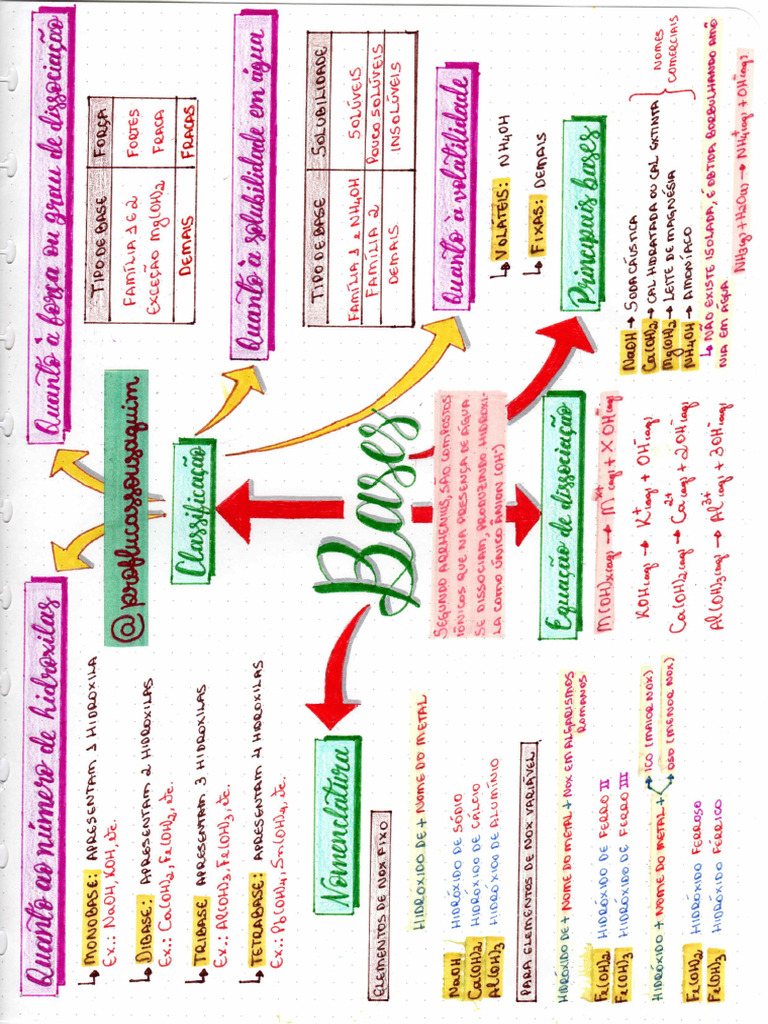 Quanto ao número de hidroxilas
↳ MONOBASE: APRESENTAM 1 HIDROXILA
Ex.: NaOH, KOH, etc.
↳ DIBASE: APRESENTAM 2 HIDROXILAS
Ex.: Ca(OH)2, Fe(OH)2, etc.
↳ TRIBASE APRESENTAM 3 HIDROXILAS
Ex.: Al(OH)3, Fe(OH)3, etc.
↳ TETRABASE: APRESENTAM 4 HIDROXILAS
Ex.: Pb(OH)4, Sn(OH)4, etc.
@proflucassousaquim
Classificação
Quanto à força ou grau de dissociação
TIPO DE BASE FORÇA
FAMÍLIA 1 E 2 FORTES
EXCEÇÃO Mg(OH)2 FRACA
DEMAIS FRACAS
Quanto à solubilidade em água
TIPO DE BASE SOLUBILIDADE
FAMÍLIA 1 e NH4OH SOLÚVEIS
FAMÍLIA 2 POUCO SOLÚVEIS
DEMAIS INSOLÚVEIS
Quanto à volatilidade
↳ VOLÁTEIS: NH4OH
↳ FIXAS: DEMAIS
Bases
SEGUNDO ARRHENIUS, SÃO COMPOSTOS
IÔNICOS QUE NA PRESENÇA DE ÁGUA
SE DISSOCIAM, PRODUZINDO HIDROXI-
LA COMO ÚNICO ÂNION (OH-)
Nomenclatura
ELEMENTOS DE NOX FIXO
HIDRÓXIDO DE + NOME DO METAL
NaOH HIDRÓXIDO DE SÓDIO
Ca(OH)2 HIDRÓXIDO DE CÁLCIO
Al(OH)3 HIDRÓXIDO DE ALUMÍNIO
PARA ELEMENTOS DE NOX VARIÁVEL
HIDRÓXIDO DE + NOME DO METAL + NOX EM ALGARISMOS
ROMANOS
Fe(OH)2 HIDRÓXIDO DE FERRO II
Fe(OH)3 HIDRÓXIDO DE FERRO III
HIDRÓXIDO + NOME DO METAL + → ICO (MAIOR NOX)
→ OSO (MENOR NOX)
Fe(OH)2 HIDRÓXIDO FERROSO
Fe(OH)3 HIDRÓXIDO FÉRRICO
Equação de dissociação
M(OH)x(aq) → M^x+(aq) + X OH^-(aq)
KOH(aq) → K^+(aq) + OH^-(aq)
Ca(OH)2(aq) → Ca^2+(aq) + 2OH^-(aq)
Al(OH)3(aq) → Al^3+(aq) + 3OH^-(aq)
Principais bases
NaOH → SODA CÁUSTICA
Ca(OH)2 → CAL HIDRATADA OU CAL EXTINTA
Mg(OH)2 → LEITE DE MAGNÉSIA
NH4OH → AMONÍACO
NOMES
COMERCIAIS
↳ NÃO EXISTE ISOLADA, É OBTIDA BORBULHANDO AMÔ
NIA EM ÁGUA
NH3(g) + H2O(l) → NH4^+(aq) + OH^-(aq)